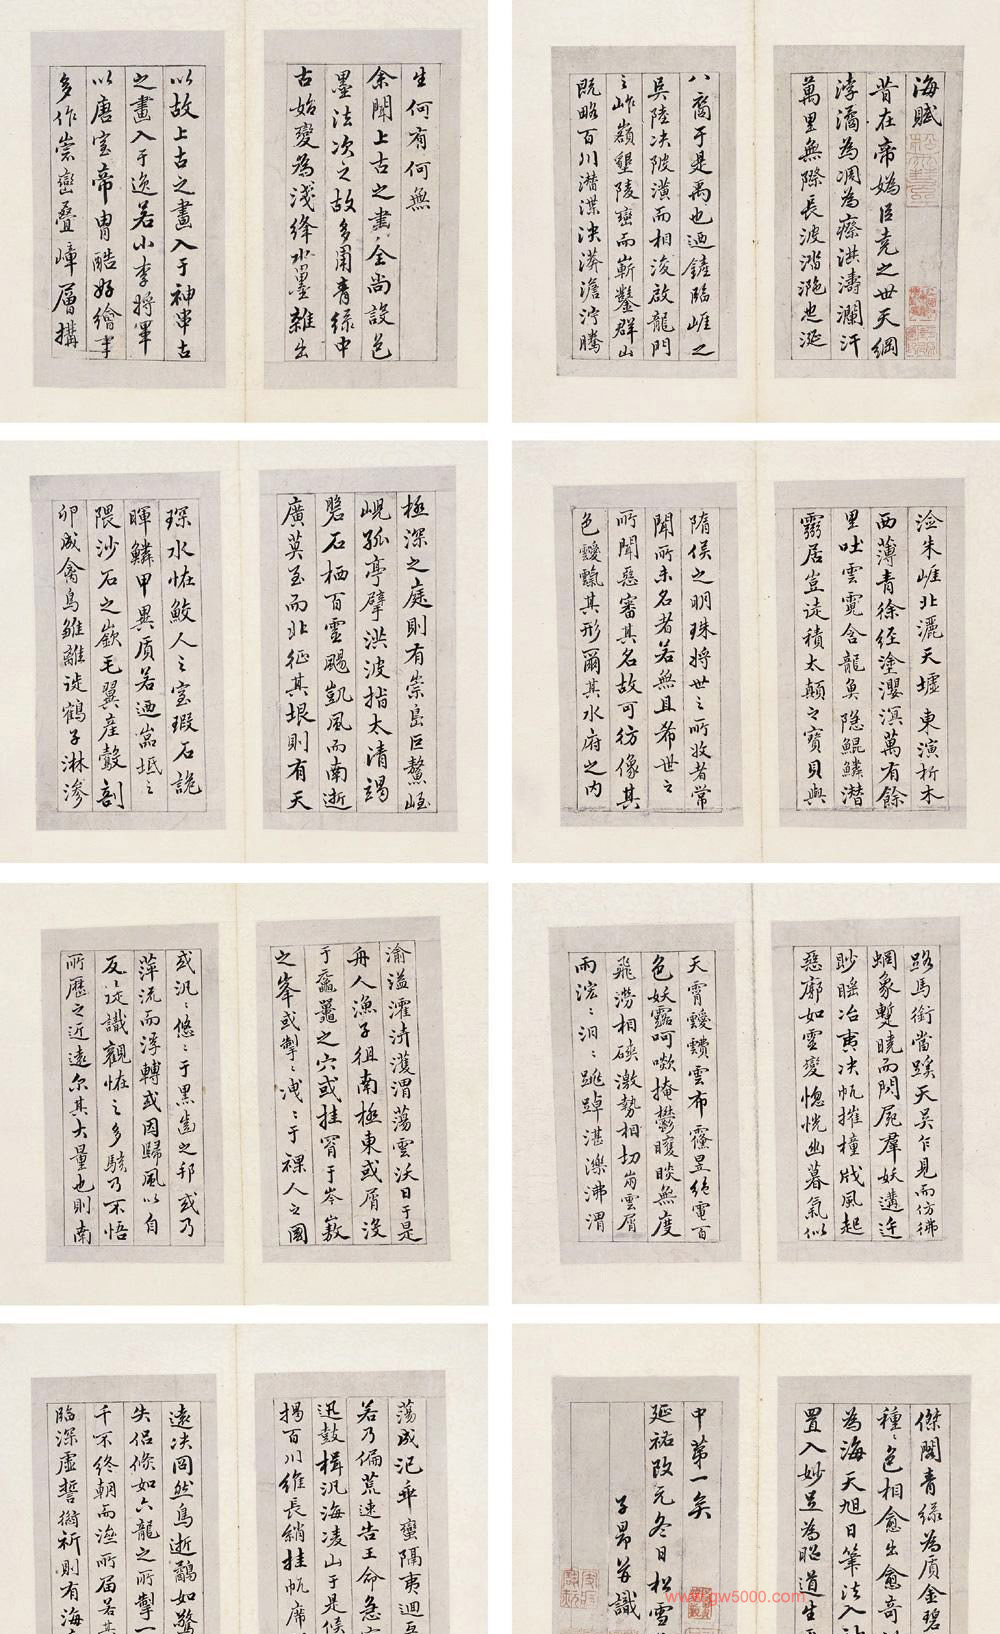 海賦
昔在帝媯臣堯之世天綱
浡潏為凋為瘵洪濤瀾汗
萬里無際長波涾㴸迆涎
八裔于是禹也迺鏟臨崖之
阜陸决陂潢而相浚啟龍門
之岞嶺墾陵巒而嶄鑿群山
既略百川潛渫泱漭澹泞騰
生何有何無
余聞上古之畫全尚設色
墨法次之故多用青绿中
古始變為淺絳水墨雜出
以故上古之畫入于神中古
之畫入于逸若小李將軍
以唐室帝胄酷好繪事
多作崇巒叠嶂層搆
淦朱崖北灑天墟東演析木
西薄青徐經塗瀴溟萬有餘
里吐雲霓含龍魚隐鯤鱗潛
靈居豈徒積太顛之寶貝與
隋侯之明珠將世之所收者常
聞所未名者若無且希世之
所聞惡審其名故可彷像其
色靉霼其形爾其水府之内
極深之庭則有崇島巨鰲峌
峴孤亭擘洪波指太清竭
磐石栖百靈颺凱風而南逝
廣莫至而北征其垠則有天
琛水怪鮫人之室瑕石詭
暉鱗甲異质若迺嵓坻之
隈沙石之嶔毛翼産鷇剖
卵成禽鳥雛離褷鶴子淋滲
路馬銜當蹊天吴乍見而仿佛
蝄象蹔曉而閃屍羣妖遘迕
眇䁘冶夷决帆摧橦戕風起
惡廓如靈變惚恍幽暮氣似
天霄靉靅雲布靃昱絕電百
色妖露呵欻掩鬱矆睒無度
飛澇相磢激勢相切崩雲屑
雨浤々汩々跳踔湛濼沸渭
渝溢瀖泋濩渭蕩雲沃日于是
舟人漁子徂南極東或屑没
于黿鼉之穴或挂罥于岑㟼
之峯或掣々洩々于裸人之國
或汎々悠々于黑齒之邦或乃
萍流而浮轉或因歸風以自
反徒識觀怪之多駭乃不悟
所歷之近遠尔其大量也則南
傑閣青绿為质金碧
種々色相愈出愈奇
為海天旭日筆法入
置入妙㝵為昭道生
中第一矣
延祐改元冬日松雪
子昂并識
蕩成汜乖蠻隔夷迴
若乃偏荒速告王命急
迅鼓楫汎海凌山于是候
揭百川維長綃挂帆席
遠决冏然鳥逝鷸如驚
失侣倏如六龍之所掣一
千不終朝而濟所届若其
臨深虚誓愆祈則有海
www.gw5000.com